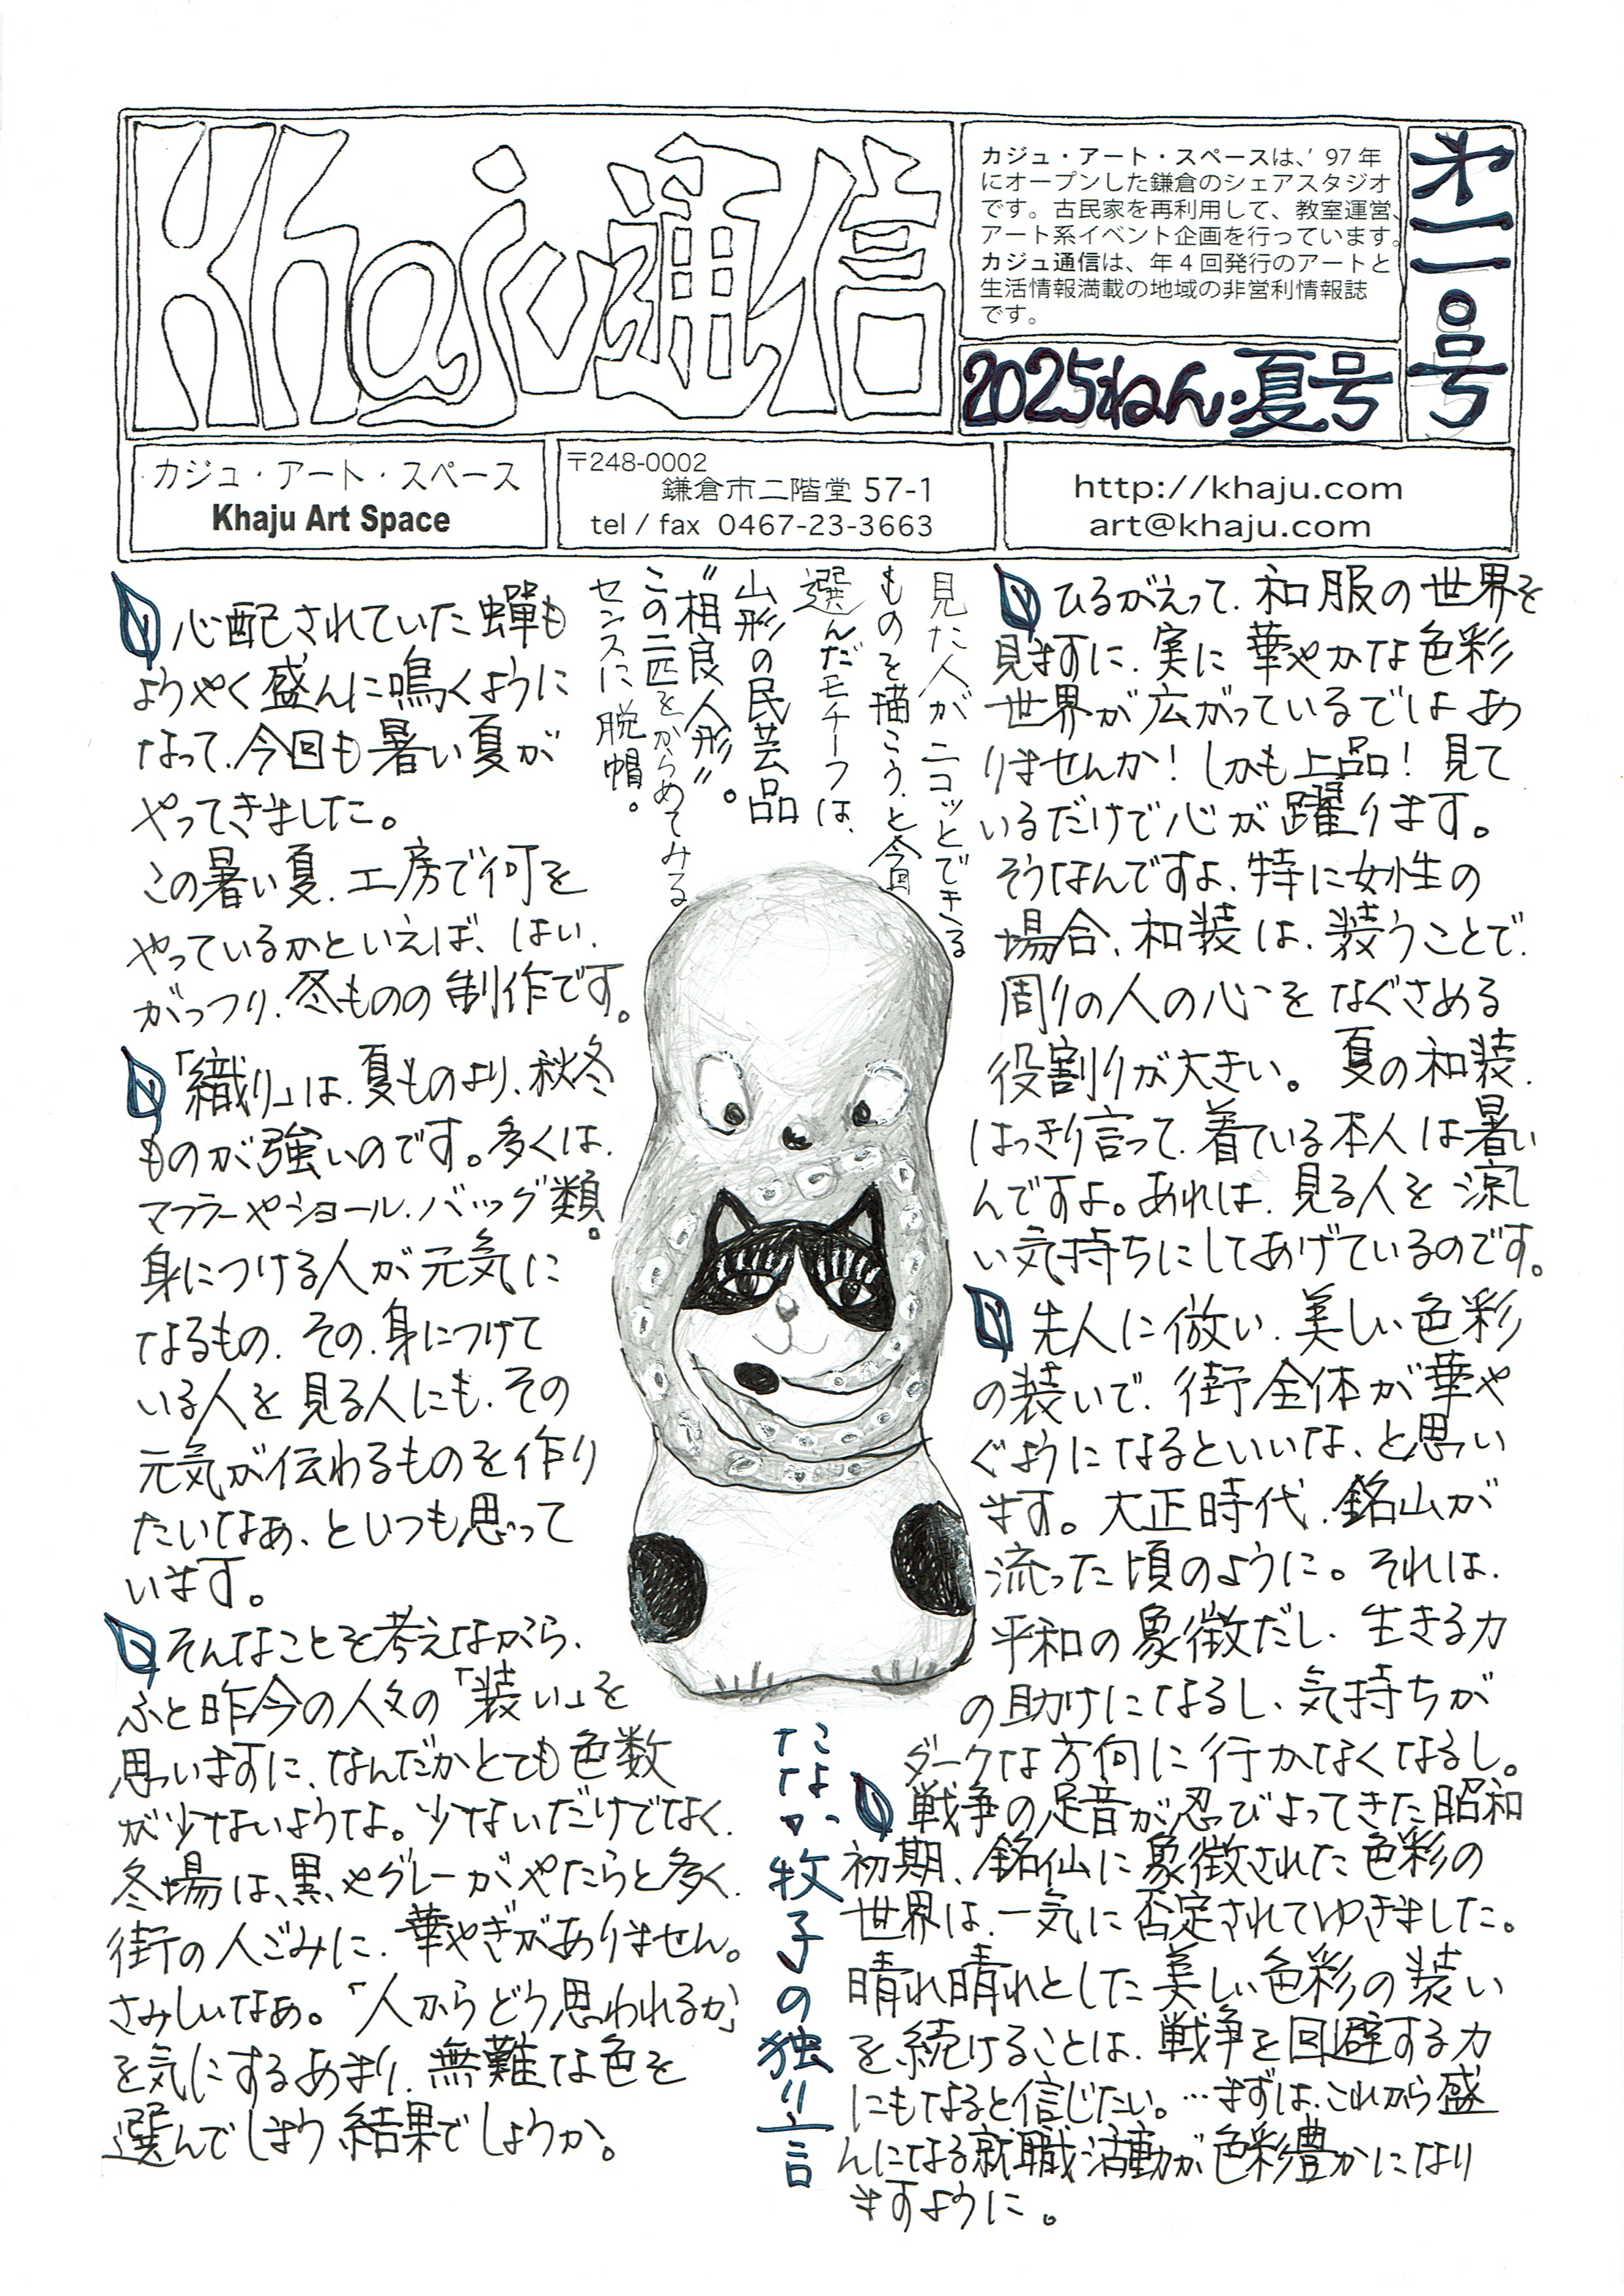 Khaju通信
カジュ・アート・スペースは、'97年
にオープンした鎌倉のシェアスタジオ
です。古民家を再利用して、教室運営、
アート系イベント企画を行っています。
カジュ通信は、年4回発行のアートと
生活情報満載の地域の非営利情報誌
です。
2025ねん・夏号
第一一〇号
カジュ・アート・スペース
Khaju Art Space
〒248-0002
鎌倉市二階堂 57-1
tel / fax 0467-23-3663
http://khaju.com
art@khaju.com
心配されていた蟬も
ようやく盛んに鳴くように
なって、今回も暑い夏が
やってきました。
この暑い夏、工房で何を
やっているかといえば、はい、
がっつり、冬ものの制作です。
「織り」は、夏ものより、秋冬
ものが強いのです。多くは、
マフラーやショール、バッグ類。
身につける人が元気に
なるもの、その、身につけて
いる人を見る人にも、その
元気が伝わるものを作り
たいなぁ、といつも思って
います。
そんなことを考えながら、
ふと昨今の人々の「装い」を
思いますに、なんだかとても色数
が少ないような。少ないだけでなく、
冬場は、黒やグレーがやたらと多く、
街の人ごみに、華やぎがありません。
さみしいなぁ。「人からどう思われるか」
を気にするあまり、無難な色を
選んでしまう結果でしょうか。
見た人がニコッとできる
ものを描こう、と今回
選んだモチーフは、
山形の民芸品
"相良人形"。
この二匹をからめてみる
センスに脱帽。
ひるがえって、和服の世界を
見ますに、実に華やかな色彩
世界が広がっているではあ
りませんか！しかも上品！見て
いるだけで心が躍ります。
そうなんですよ、特に女性の
場合、和装は、装うことで、
周りの人の心をなぐさめる
役割りが大きい。夏の和装、
はっきり言って、着ている本人は暑い
んですよ。あれは、見る人を涼し
い気持ちにしてあげているのです。
先人に倣い、美しい色彩
の装いで、街全体が華や
ぐようになるといいな、と思い
ます。大正時代、銘山が
流った頃のように。それは、
平和の象徴だし、生きる力
の助けになるし、気持ちが
ダークな方向に行かなくなるし。
戦争の足音が忍びよってきた昭和
初期、銘仙に象徴された色彩の
世界は、一気に否定されてゆきました。
晴れ晴れとした美しい色彩の装い
を続けることは、戦争を回避する力
にもなると信じたい。…まずは、これから盛
んになる就職活動が色彩豊かになり
ますように。
たなか牧子の独り言